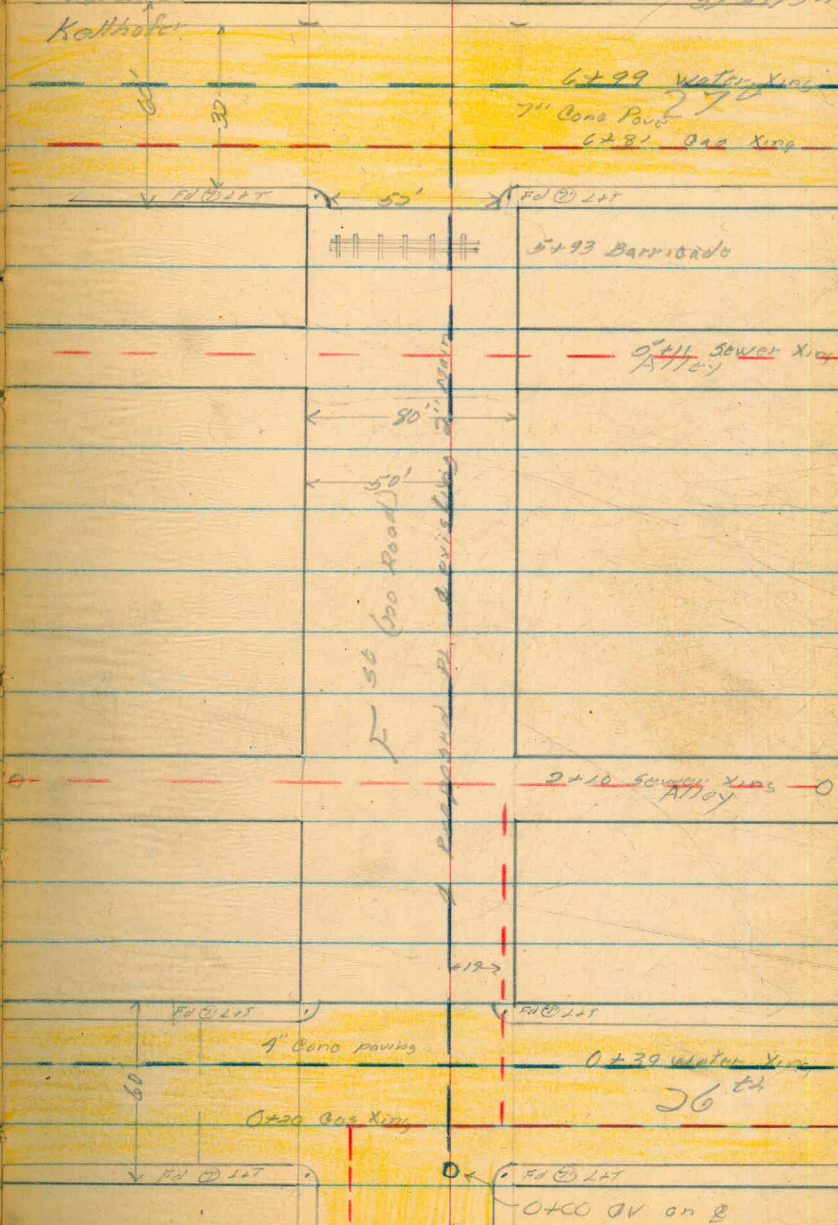 Kellhofer
60'
30
6+99 water Xing
27th
7" Conc Pave
6+81 Gas Xing
Fd L&T
52'
Fd L&T
5+93 Barricade
5+11 Sewer Xing
Alley
80'
50'
F St (no Road)
Proposed PL & existing 2" Main
2+10 Sewer Xing
Alley
19
Fd L&T
Fd L&T
4" Conc paving
0+39 water Xing
60'
26th
0+20 Gas Xing
Fd L&T
Fd L&T
0+00 GV on